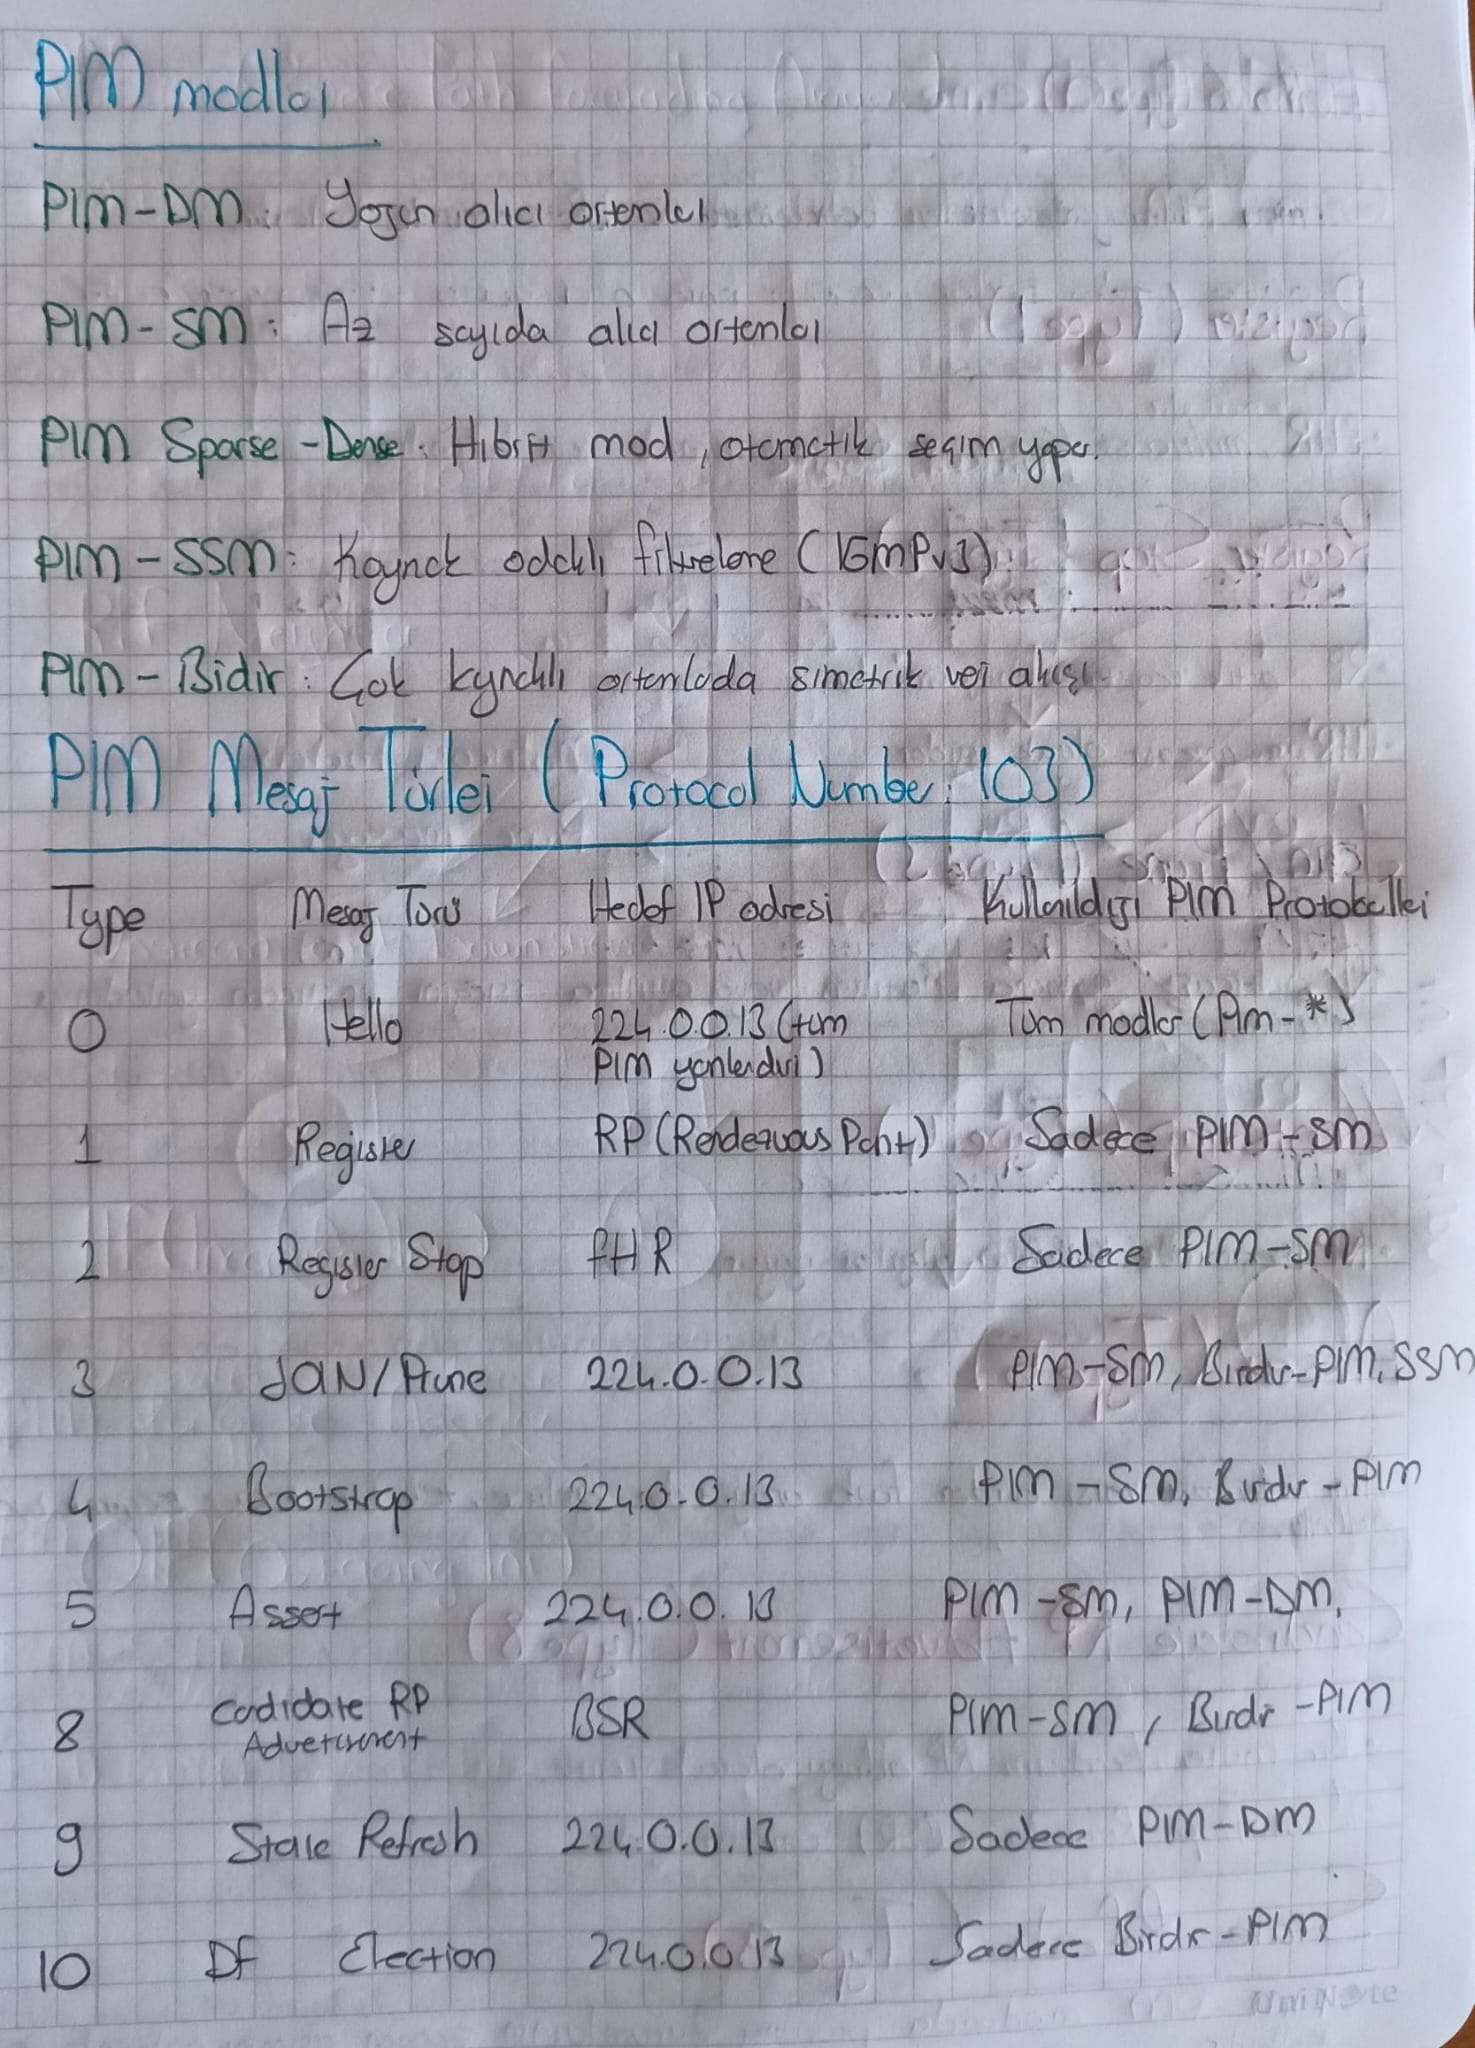 PIM modları
PIM-DM: Yoğun alıcı ortamları
PIM-SM: Az sayıda alıcı ortamları
PIM Sparse-Dense: Hibrit mod, otomatik seçim yapar.
PIM-SSM: Kaynak odaklı filtreleme (IGMPv3)
PIM-Bidir: Çok kynaklı ortamlada simetrik veri akışı
PIM Mesaj Türlei (Protocol Number: 103)
Type Mesaj Türü Hedef IP adresi Kullanıldığı PIM Protokolleri
0 Hello 224.0.0.13 (tüm Tüm modlar (PIM-*)
PIM yönlendirici)
1 Register RP (Rendezvous Point) Sadece PIM-SM
2 Register Stop FHR Sadece PIM-SM
3 JOIN/Prune 224.0.0.13 PIM-SM, Birdir-PIM, SSM
4 Bootstrap 224.0.0.13 PIM-SM, Birdir-PIM
5 Assert 224.0.0.13 PIM-SM, PIM-DM,
8 Cadidate RP BSR PIM-SM, Birdir-PIM
Advertisment
9 State Refresh 224.0.0.13 Sadece PIM-DM
10 DF Election 224.0.0.13 Sadece Birdir-PIM
UniNote